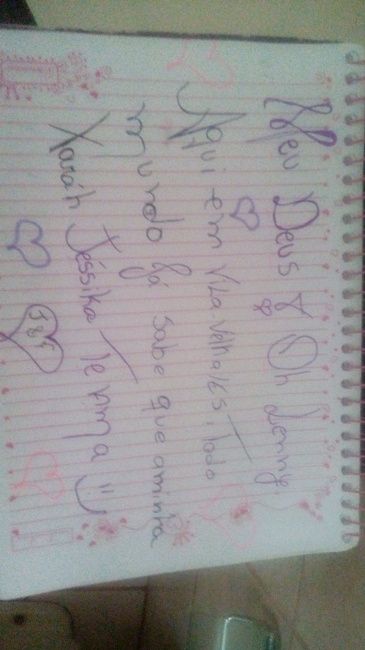 Meu Deus & Oh Lenny.
Aqui em Vila Velha/ES, Todo
mundo já sabe que aminha
Xaráh Jéssika Te Ama =)
J & J